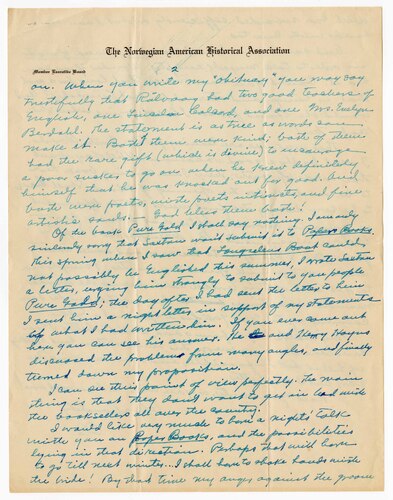 The Norwegian American Historical Association
Member Executive Board
2
on. When you write my "obituary" you may say
truthfully that Rolvaag had two good teachers of
English, one Lincoln Colcord, and one Mrs. Evelyn
Berdahl. The statement is as true as words can
make it. Both of them were kind; both of them
had the rare gift (which is divine) to encourage
a poor sucker to go on when he knew definitely
himself that he was knocked out for good. And
both were poets, were poets intimate, and fine
artistic souls. — God bless them both!
Of the book Pure Gold I shall say nothing. I am only
sincerely sorry that Saxton won't submit it to Paper Books.
This spring when I saw that Longselens Baat could
not possibly be Englished this summer, I wrote Saxton
a letter, urging him strongly to submit to you people
Pure Gold; the day after I had sent the letter to him
I sent him a night letter in support of my statements
of what I had written him. If you ever come out
here you can see his answer. He and Henry Hoyns
discussed the problem from many angles, and finally
turned down my proposition.
I can see their point of view perfectly. The main
thing is that they don't want to get in bad with
the booksellers all over the country.
I would like very much to have a night's talk
with you on Paper Books, and the possibilities
lying in that direction. Perhaps that will have
to go till next winter. I shall have to shake hands with
the bride! By that time my anger against the groom